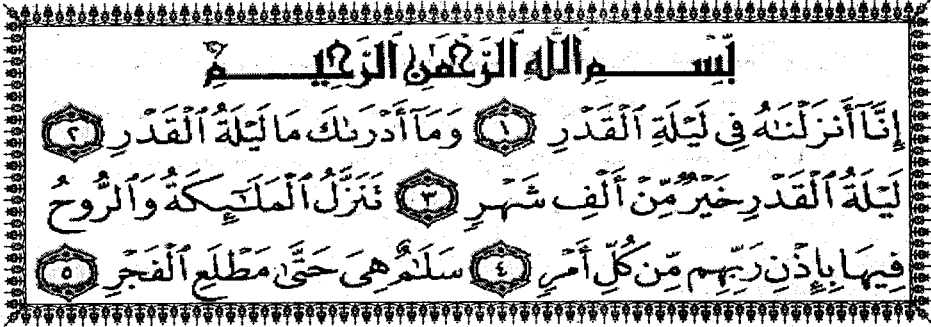 بِّسْمِ ٱللَّهِ ٱلرَّحْمَٰنِ ٱلرَّحِيمِ
إِنَّآ أَنزَلْنَٰهُ فِى لَيْلَةِ ٱلْقَدْرِ ١ وَمَآ أَدْرَىٰكَ مَا لَيْلَةُ ٱلْقَدْرِ ٢
لَيْلَةُ ٱلْقَدْرِ خَيْرٌ مِّنْ أَلْفِ شَهْرٍ ٣ تَنَزَّلُ ٱلْمَلَٰٓئِكَةُ وَٱلرُّوحُ
فِيهَا بِإِذْنِ رَبِّهِم مِّن كُلِّ أَمْرٍ ٤ سَلَٰمٌ هِىَ حَتَّىٰ مَطْلَعِ ٱلْفَجْرِ ٥